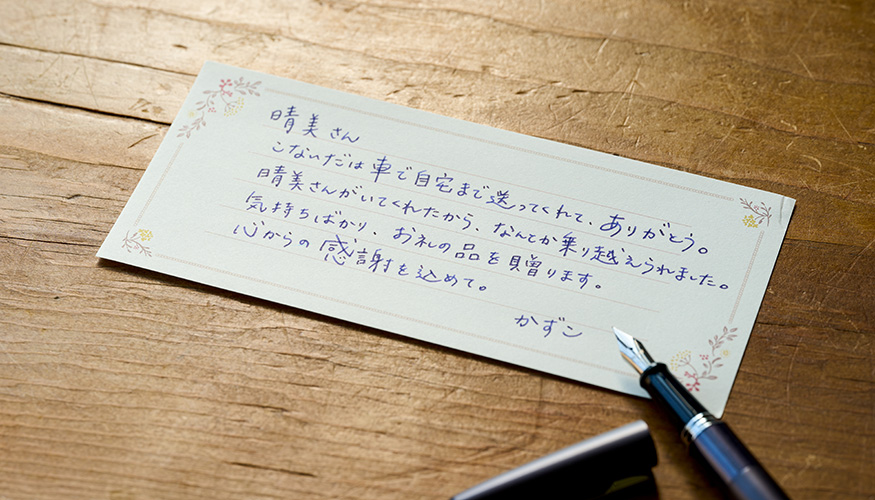 晴美さん
こないだは車で自宅まで送ってくれて、ありがとう。
晴美さんがいてくれたから、なんとか乗り越えられました。
気持ちばかり、お礼の品を贈ります。
心からの感謝を込めて。
かずこ